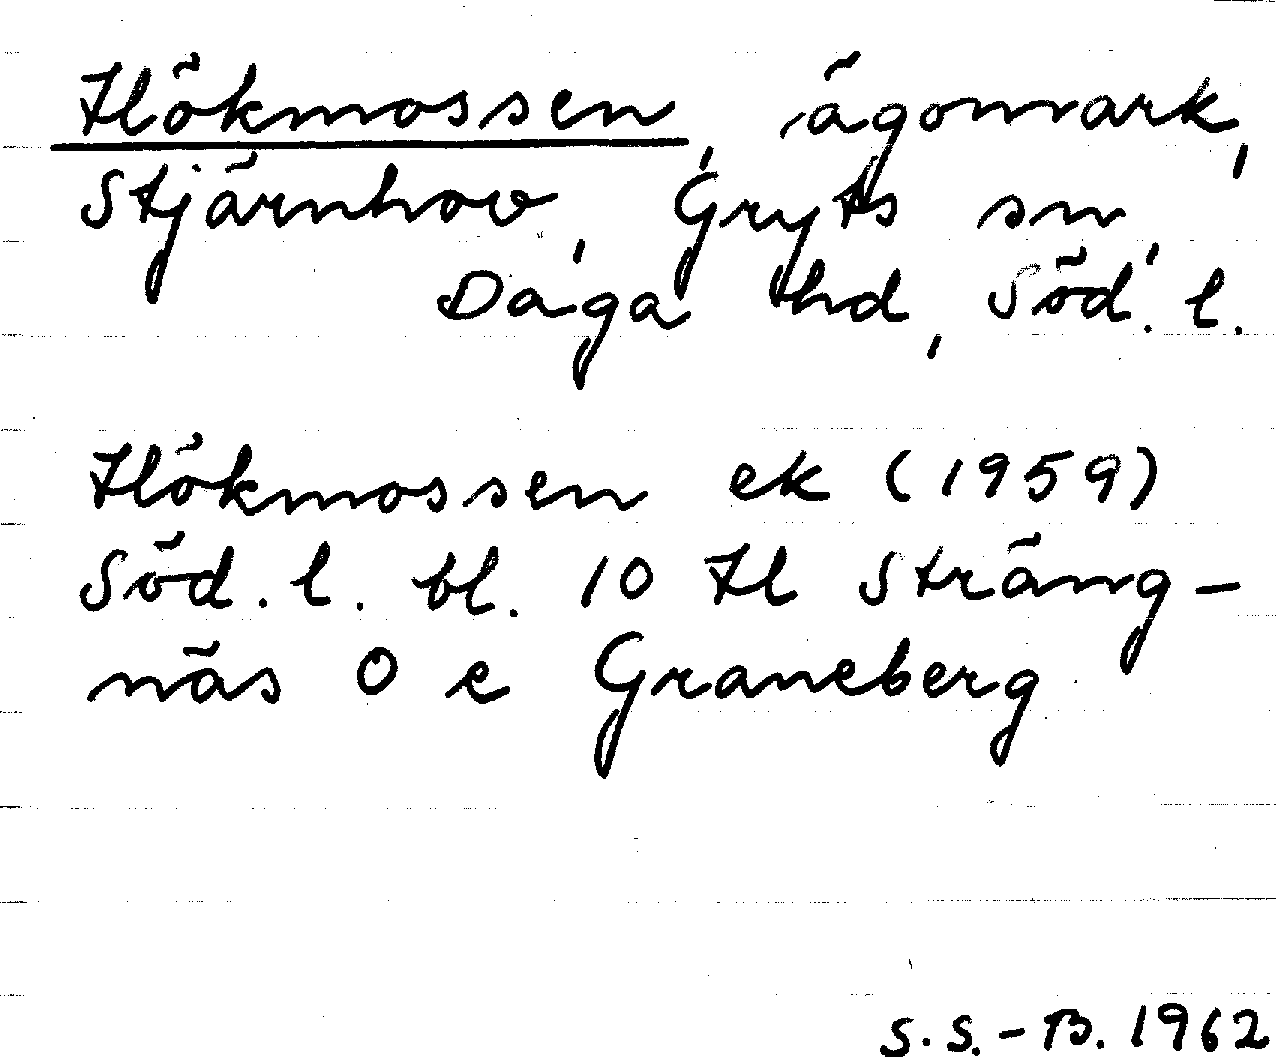 Hökmossen, ägomark,
Stjärnhov, Gryts sn,
Daga hd, Söd. l.
Hökmossen ek (1959)
Söd. l. bl. 10 H l Sträng-
näs O e Graneberg
S. S.-B. 1962